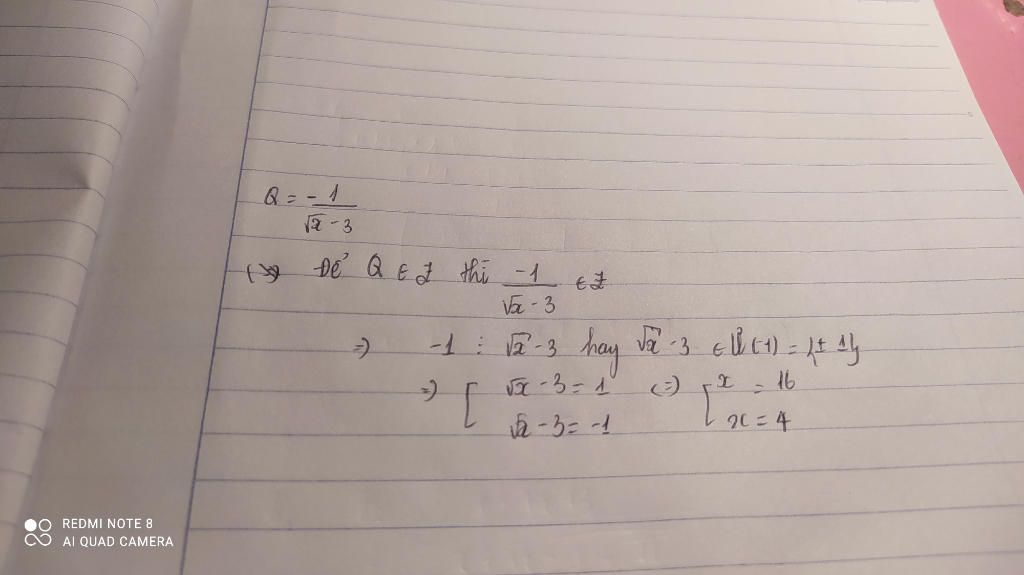 Q = -1/(√x - 3)
Để Q ∈ Z thì -1/(√x - 3) ∈ Z
=) -1 ⋮ √x - 3 hay √x - 3 ∈ Ư(-1) = {± 1}
=) [ √x - 3 = 1 (=) [ x = 16
√x - 3 = -1 x = 4
REDMI NOTE 8
AI QUAD CAMERA